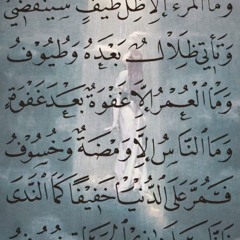 وَمَا الْمَرْءُ إِلَّا ظِلُّ طَيْفٍ سَيَنْقَضِي
وَتَأْتِي ظِلَالٌ بَعْدَهُ وَطُيُوفُ
وَمَا الْعُمْرُ إِلَّا غَفْوَةٌ بَعْدَ غَفْوَةٍ
وَمَا النَّاسُ إِلَّا وَمْضَةٌ وَخُسُوفُ
فَمُرَّ عَلَى الدُّنْيَا خَفِيفًا كَمَا النَّدَى